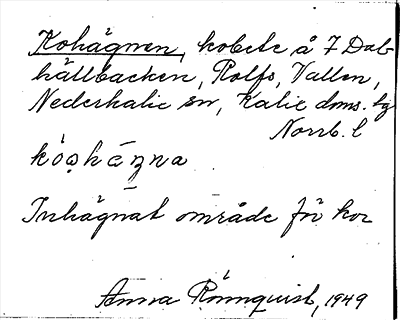 Kohägnen, kobete å 7 Dab-
hällbacken, Rolfs, Vallen,
Nederkalix sn, Kalix dms. tg
Norrb. l
Inhägnat område för kor
Anna Rönnquist, 1949